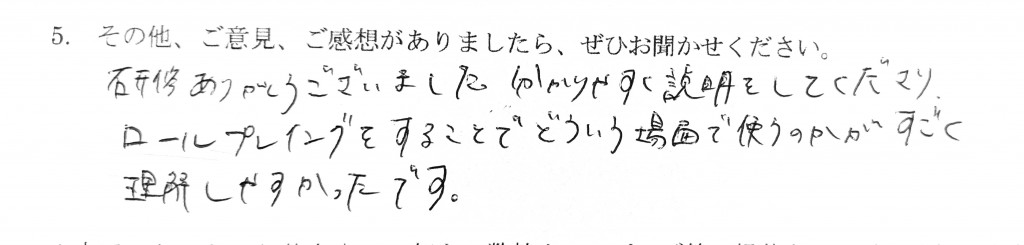 5. その他、ご意見、ご感想がありましたら、ぜひお聞かせください。
研修ありがとうございました 分かりやすく説明をしてくださり、
ロールプレイングをすることでどういう場面で使うのかがすごく
理解しやすかったです。